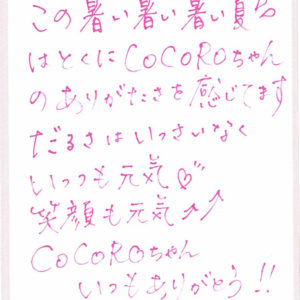 この暑い暑い暑い夏
はとくにCOCOROちゃん
のありがたさを感じてます
だるさはいっさいなく
いっつも元気♡
笑顔も元気↑↑
COCOROちゃん
いつもありがとう!!